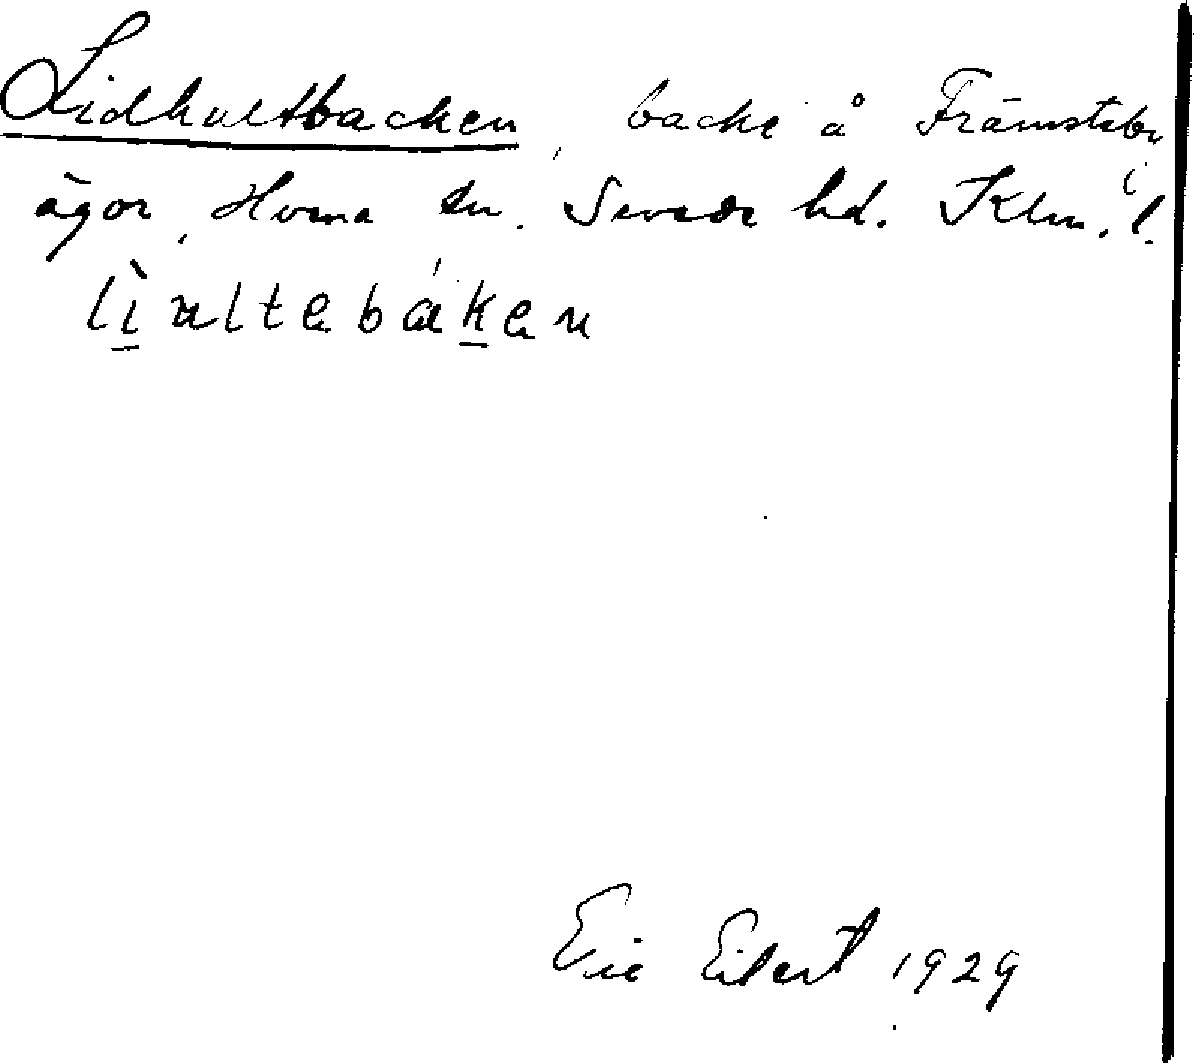 Lidhultbacken, backe å Främsteby
ägor, Horna sn. Sevede hd. Klm. l.
lìultebáken
Eric Eilert 1929